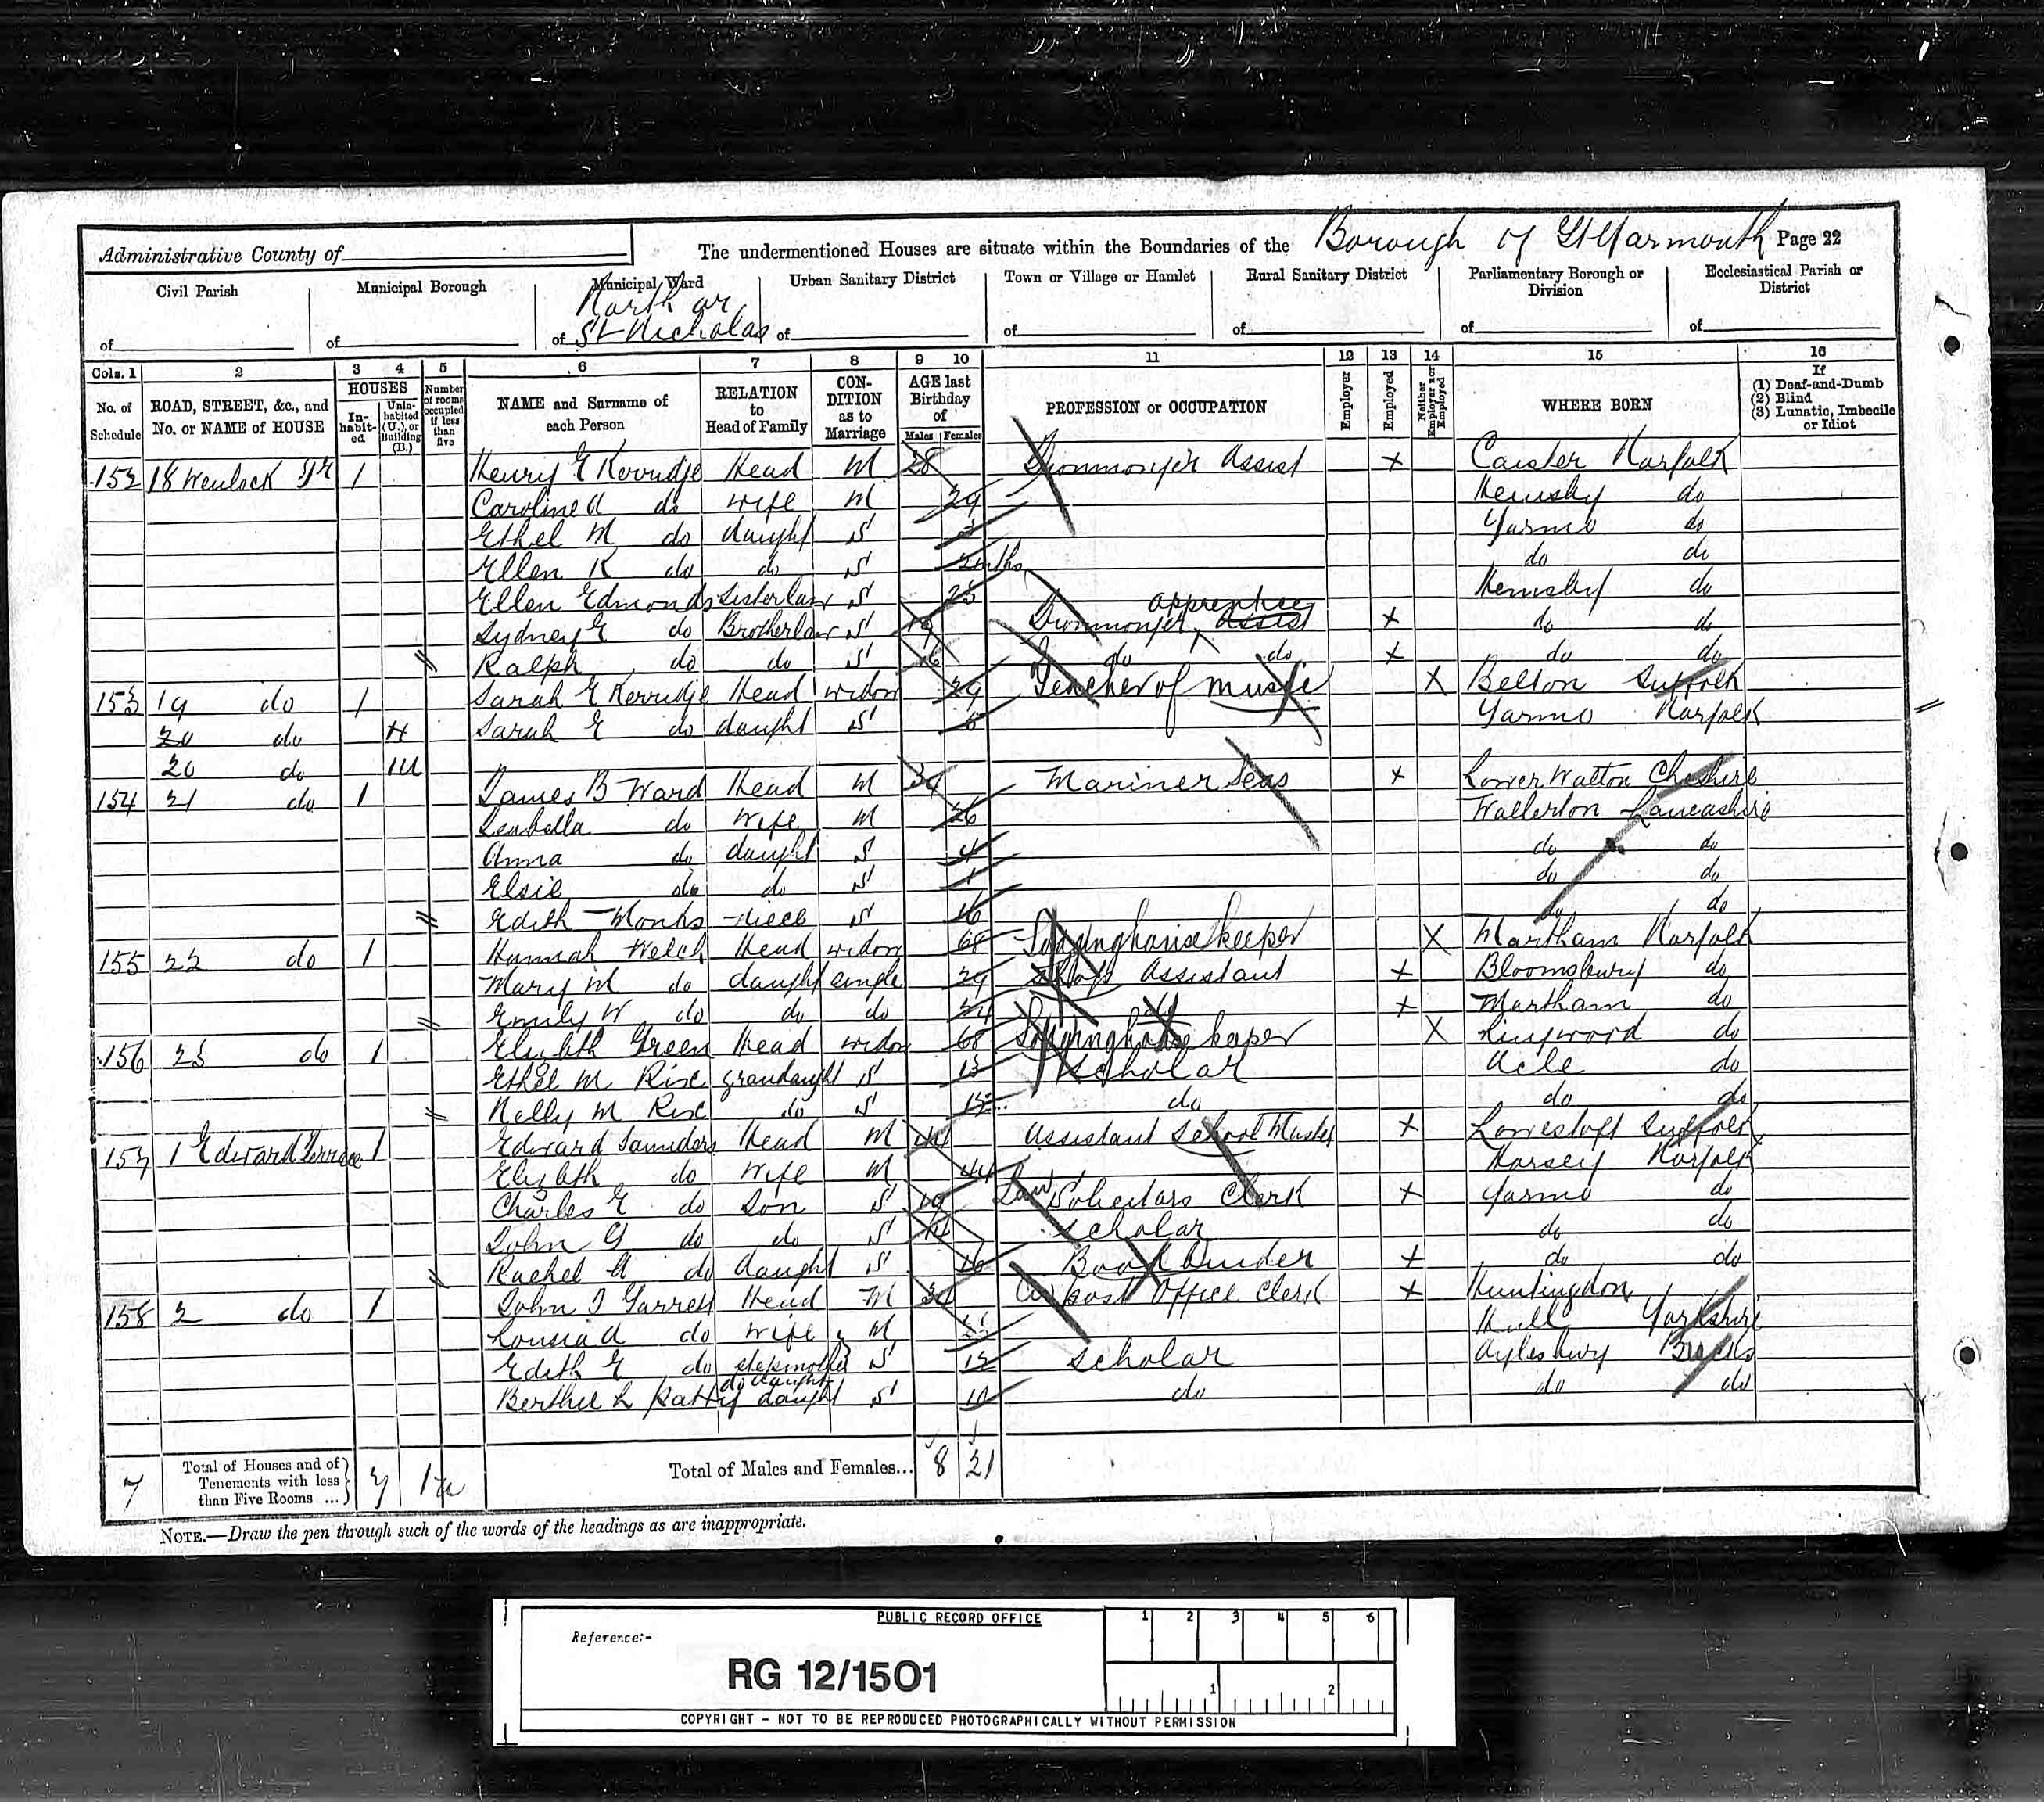 Administrative County of
The undermentioned Houses are situate within the Boundaries of the Borough of Gt Yarmouth Page 22
Civil Parish Municipal Borough Municipal Ward Urban Sanitary District Town or Village or Hamlet Rural Sanitary District Parliamentary Borough or Division Ecclesiastical Parish or District
of of of North or St Nicholas of of of of of
Cols. 1 2 3 4 5 6 7 8 9 10 11 12 13 14 15 16
No. of Schedule ROAD, STREET, &c., and No. or NAME of HOUSE HOUSES In-habit-ed Unin-habited (U.), or Building (B.) Number of rooms occupied if less than five NAME and Surname of each Person RELATION to Head of Family CON-DITION as to Marriage AGE last Birthday of Males Females PROFESSION or OCCUPATION Employer Employed Neither Employer nor Employed WHERE BORN If (1) Deaf-and-Dumb (2) Blind (3) Lunatic, Imbecile or Idiot
152 18 Wenlock 1 Henry E Kerridge Head M 28 Ironmonger Assist X Caister Norfolk
Caroline A do wife M 29 Hemsby do
Ethel M do daught S Yarmo do
Ellen K do do S 2 mths do do
Ellen Edmonds Sisterlaw S 25 Hemsby do
Sydney E do Brotherlaw S 19 Ironmonger apprentice Assist X do do
Ralph do do S 16 do do X do do
153 19 do 1 Sarah E Kerridge Head widow 29 Teacher of music X Belton Suffolk
20 do Sarah E do daught S 6 Yarmo Norfolk
20 do 1U
154 21 do 1 James B Ward Head M 34 Mariner Seas X Lower Walton Cheshire
Isabella do wife M 26 Lancashire
Anna do daught S 4 do do
Elsie do do S 1 do do
Edith Monks niece S 16 do do
155 22 do 1 Hannah Welch Head widow 68 Lodginghouse keeper X Martham Norfolk
Mary M do daught single 29 Shop Assistant X Bloomsbury do
Emily W do do do 24 do X Martham do
156 23 do 1 Elizabth Green Head widow 68 Lodginghouse keeper X Lingwood do
Ethel M Rise grandaught S 13 Scholar Acle do
Nelly M Rise do S 12 do do do
157 1 Edward Terrace 1 Edward Saunders Head M 44 Assistant School Master X Lowestoft Suffolk
Elizbth do wife M 44 Horsey Norfolk
Charles E do Son S 19 Law Solicitors Clerk X Yarmo do
John G do do S 14 Scholar do do
Rachel A do daught S 16 Book binder X do do
158 2 do 1 John J Garrett Head M 34 post Office Clerk X Huntingdon
Louisa A do wife M Hull Yorkshire
Edith E do stepmother S 12 scholar Aylesbury Bucks
do daught
Berthel L daught S 10 do do do
7 Total of Houses and of Tenements with less than Five Rooms ... 7 1u Total of Males and Females... 8 21
NOTE.—Draw the pen through such of the words of the headings as are inappropriate.
PUBLIC RECORD OFFICE 1 2 3 4 5 6
Reference:-
RG 12/1501
1 2
COPYRIGHT - NOT TO BE REPRODUCED PHOTOGRAPHICALLY WITHOUT PERMISSION